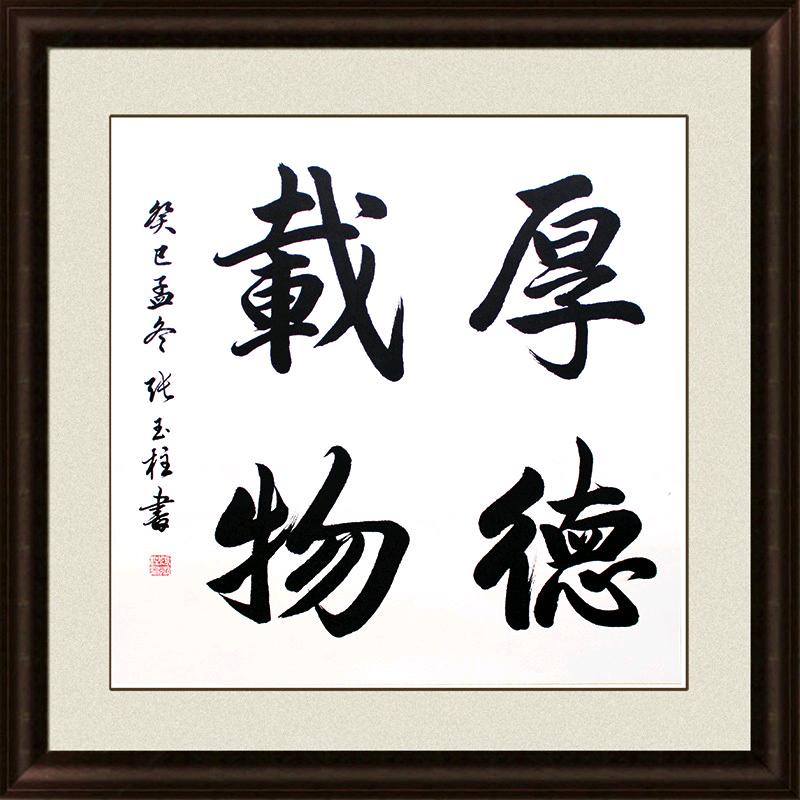 厚德
載物
癸巳孟冬張玉柱書